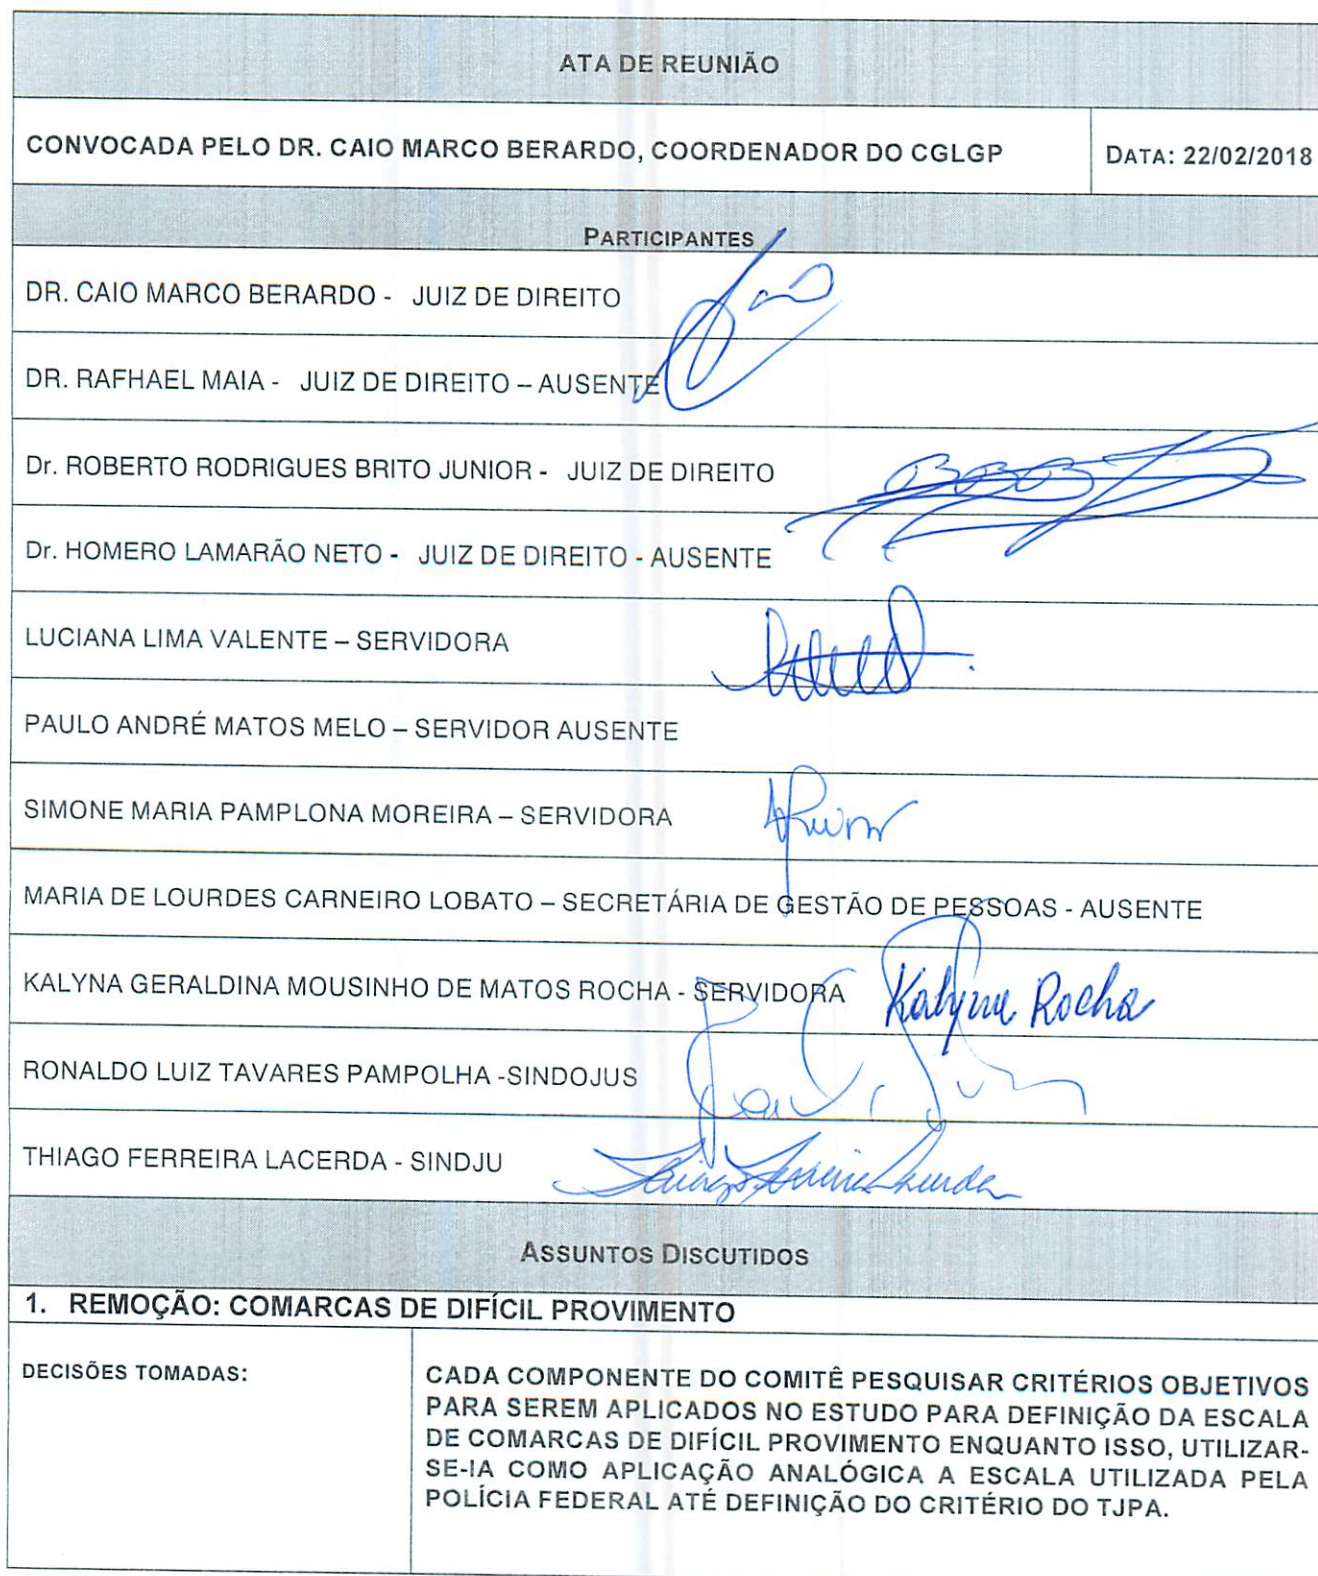 ATA DE REUNIÃO
CONVOCADA PELO DR. CAIO MARCO BERARDO, COORDENADOR DO CGLGP
DATA: 22/02/2018
PARTICIPANTES
DR. CAIO MARCO BERARDO - JUIZ DE DIREITO
DR. RAFHAEL MAIA - JUIZ DE DIREITO – AUSENTE
Dr. ROBERTO RODRIGUES BRITO JUNIOR - JUIZ DE DIREITO
Dr. HOMERO LAMARÃO NETO - JUIZ DE DIREITO - AUSENTE
LUCIANA LIMA VALENTE – SERVIDORA
PAULO ANDRÉ MATOS MELO – SERVIDOR AUSENTE
SIMONE MARIA PAMPLONA MOREIRA – SERVIDORA
MARIA DE LOURDES CARNEIRO LOBATO – SECRETÁRIA DE GESTÃO DE PESSOAS - AUSENTE
KALYNA GERALDINA MOUSINHO DE MATOS ROCHA - SERVIDORA
Kalyna Rocha
RONALDO LUIZ TAVARES PAMPOLHA -SINDOJUS
THIAGO FERREIRA LACERDA - SINDJU
Thiago Ferreira Lacerda
ASSUNTOS DISCUTIDOS
1. REMOÇÃO: COMARCAS DE DIFÍCIL PROVIMENTO
DECISÕES TOMADAS:
CADA COMPONENTE DO COMITÊ PESQUISAR CRITÉRIOS OBJETIVOS
PARA SEREM APLICADOS NO ESTUDO PARA DEFINIÇÃO DA ESCALA
DE COMARCAS DE DIFÍCIL PROVIMENTO ENQUANTO ISSO, UTILIZAR-
SE-IA COMO APLICAÇÃO ANALÓGICA A ESCALA UTILIZADA PELA
POLÍCIA FEDERAL ATÉ DEFINIÇÃO DO CRITÉRIO DO TJPA.